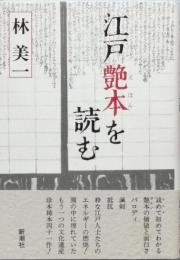 江戸艶本を読む
えほん
林美一
読めて初めてわかる
艶本の価値と面白さ
パロディ
諷刺
抵抗
粋な江戸人士たちの
エネルギーの燃焼!
闇の中に埋れていた
もう一つの文化遺産
珍本稀本四十一作!
新潮社